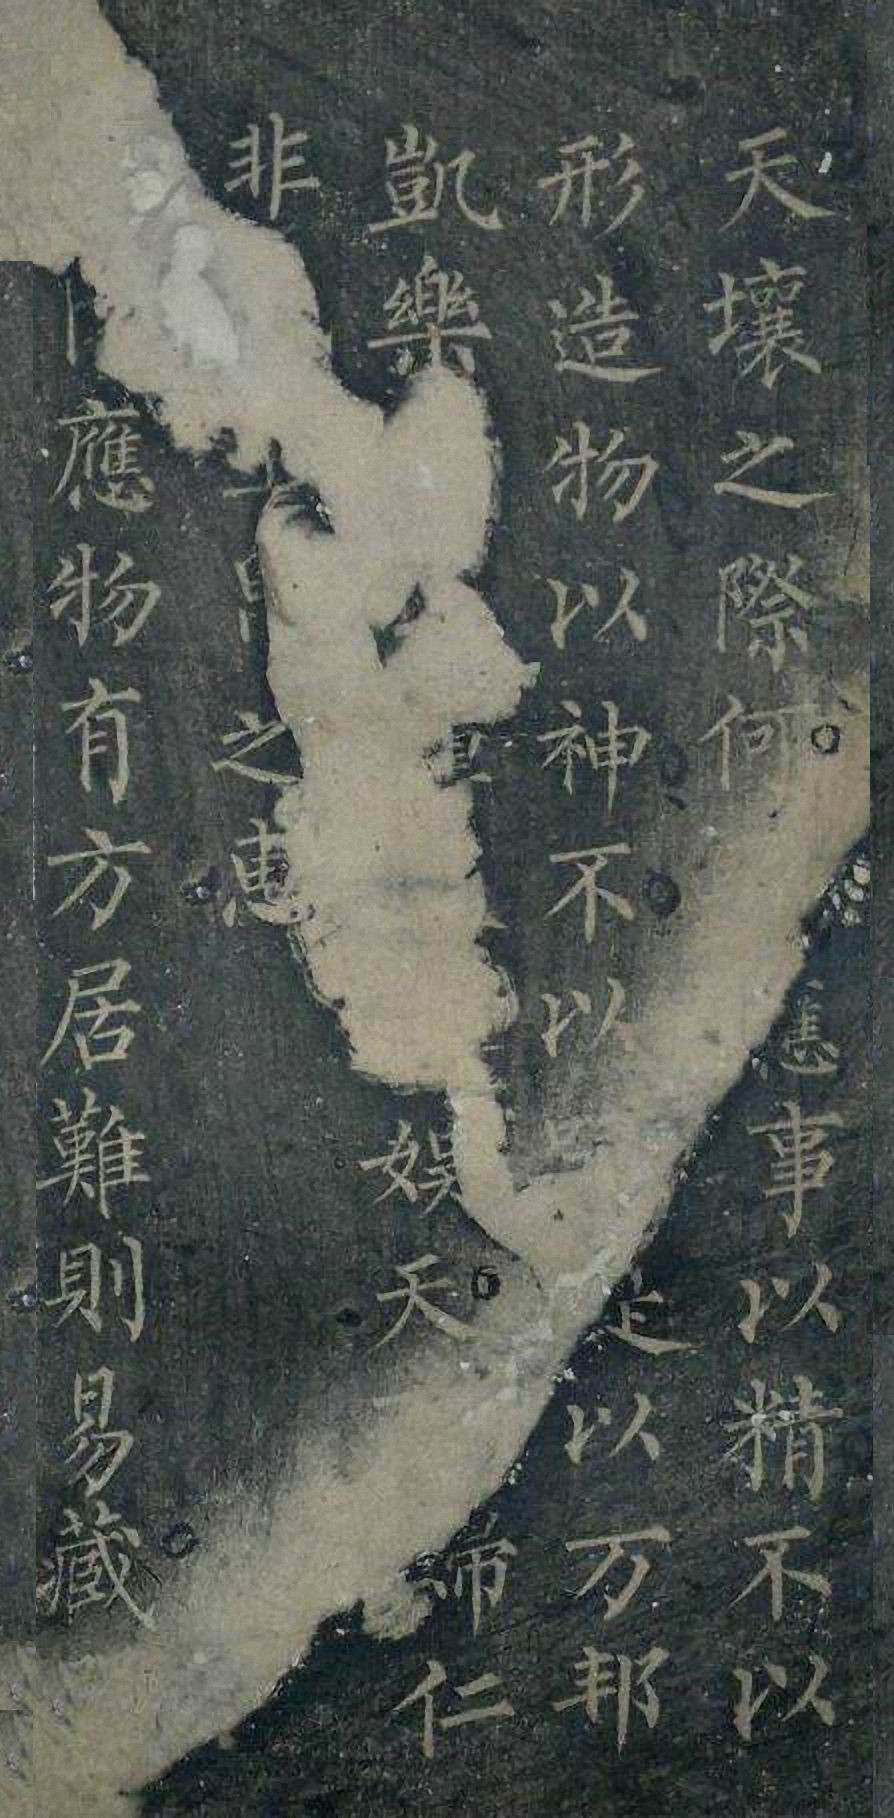 天壤之際何應事以精不以
形造物以神不以是以万邦
凱樂娛天歸仁
非之惠
應物有方居難則易藏